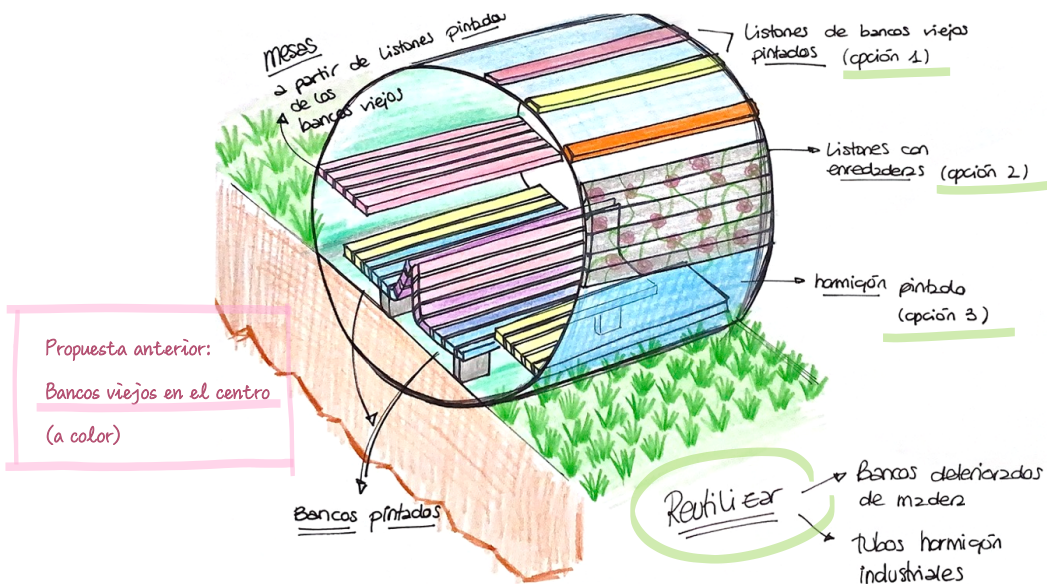 mesas
a partir de listones pintados
de los
bancos viejos
Listones de bancos viejos
pintados (opción 1)
Listones con
enredaderas (opción 2)
hormigón pintado
(opción 3)
Propuesta anterior:
Bancos viejos en el centro
(a color)
Bancos pintados
Reutilizar
Bancos deteriorados
de madera
tubos hormigón
industriales